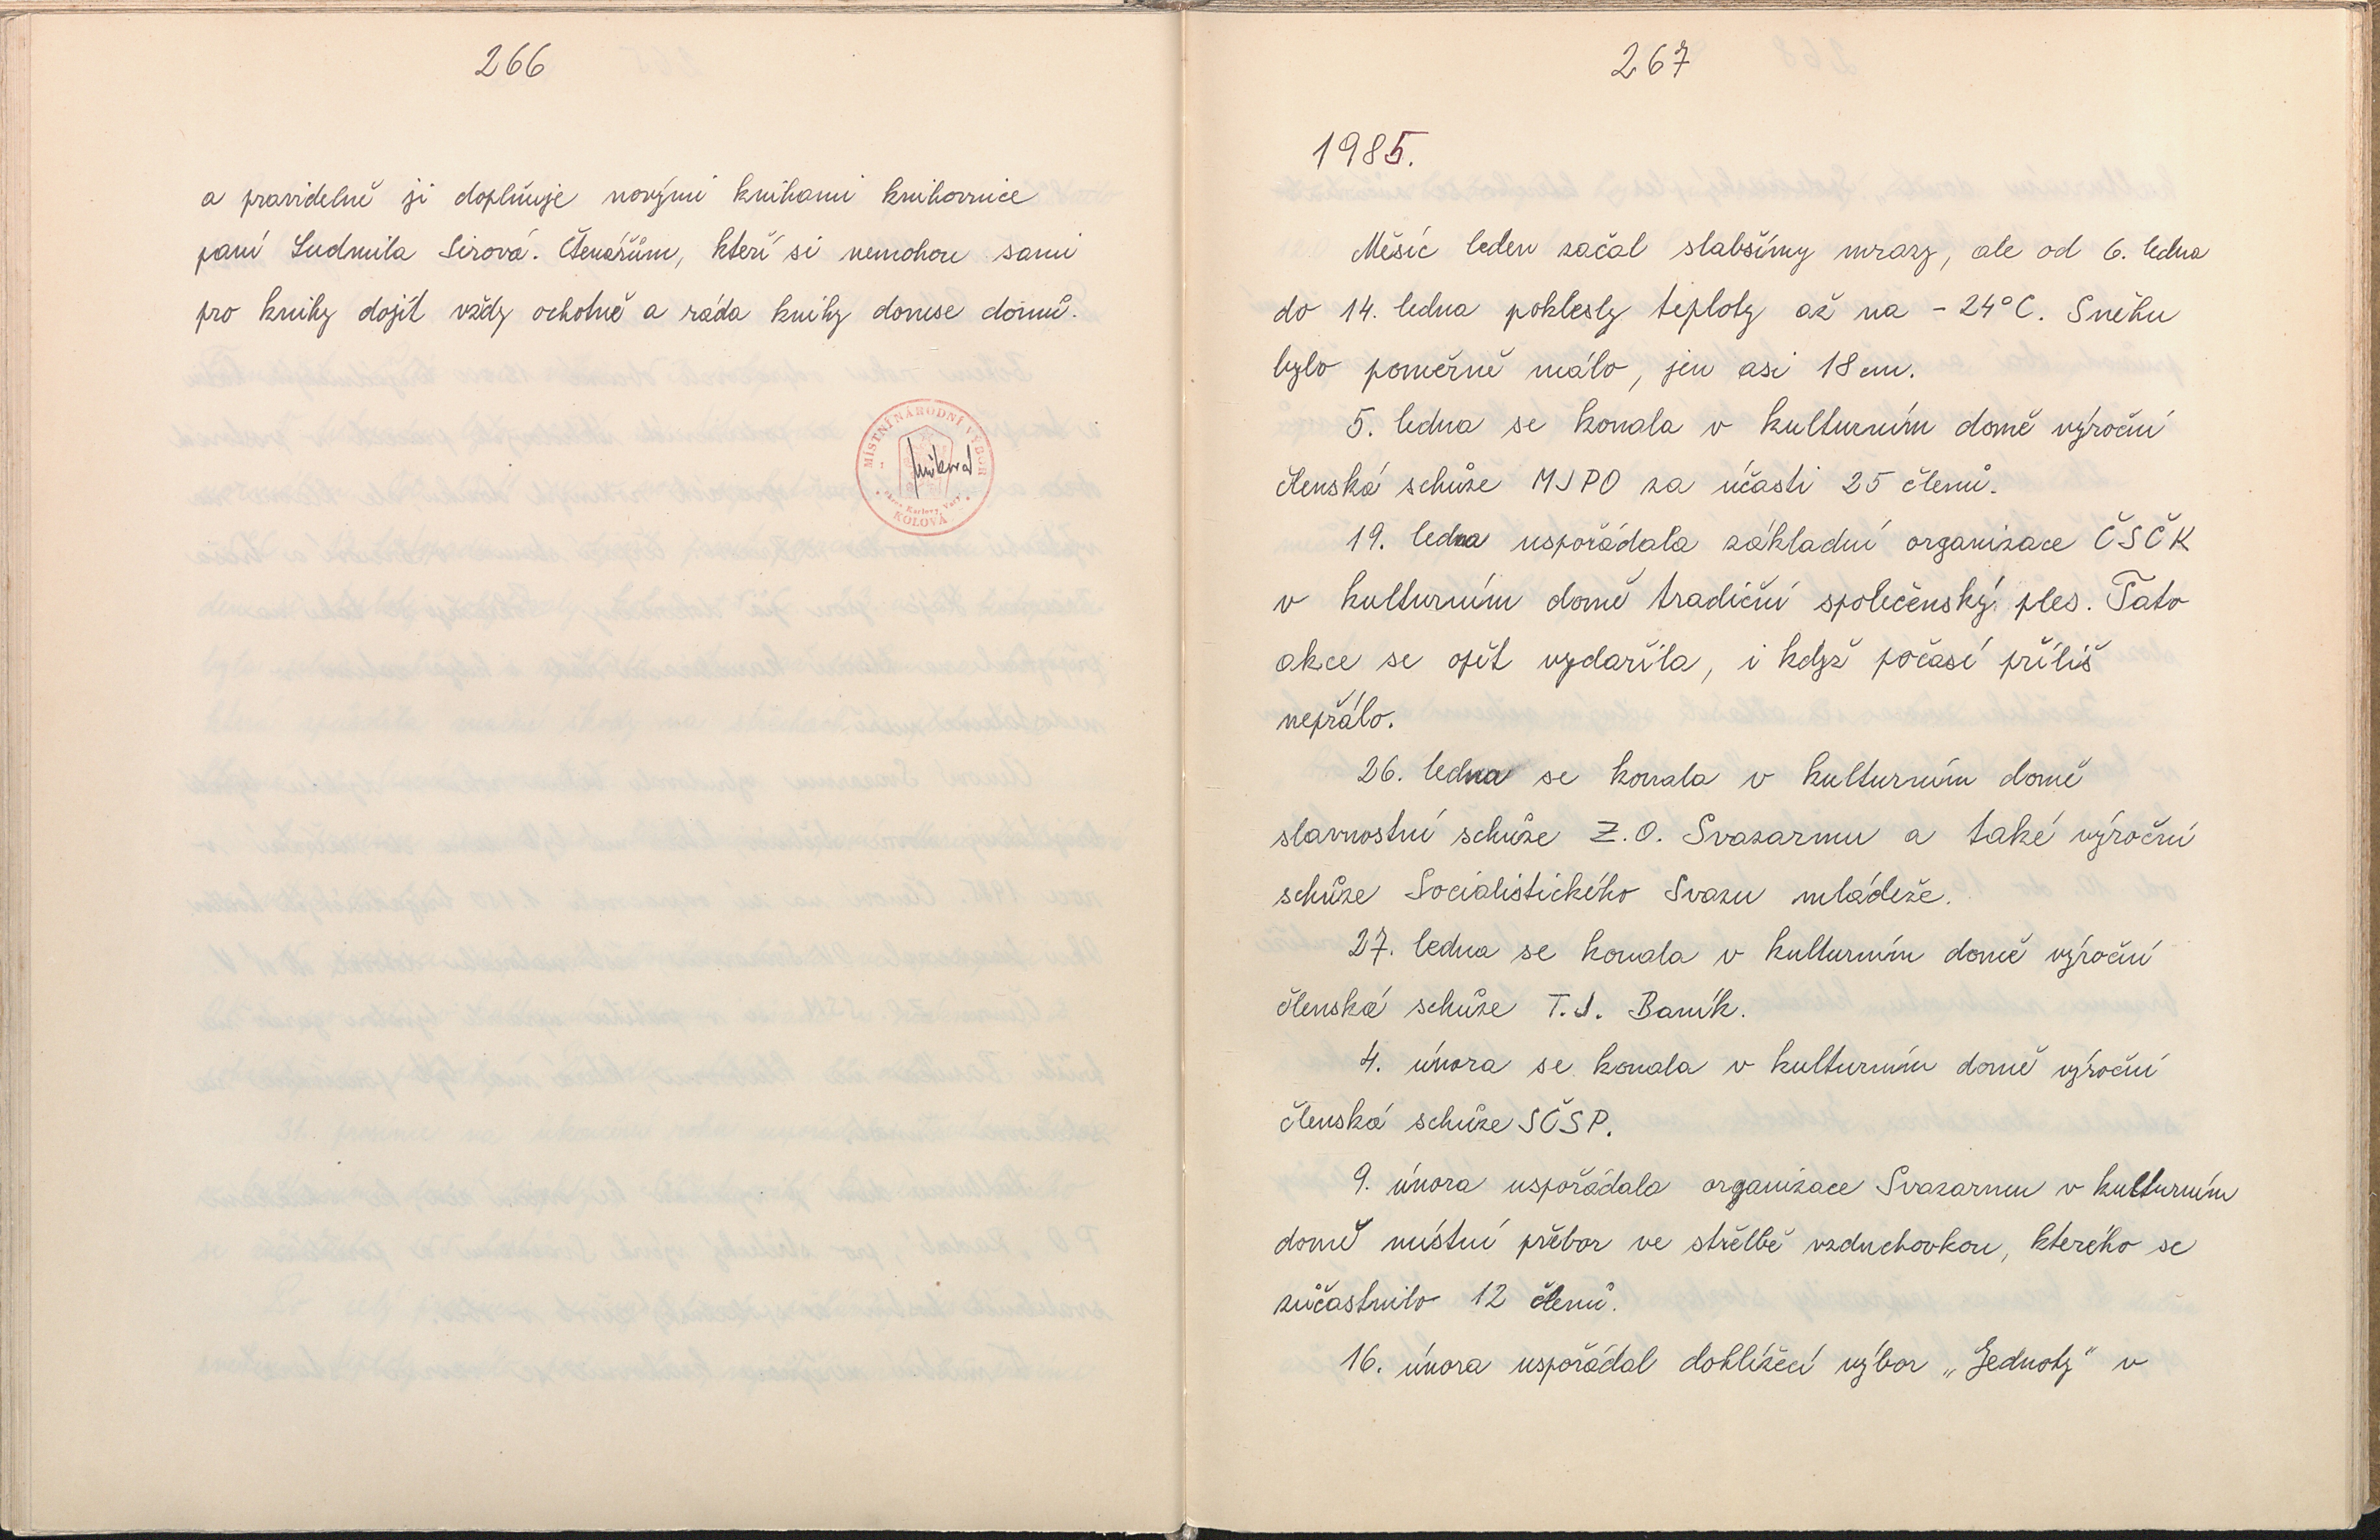 266
a pravidelně ji doplňuje novými knihami knihovnice
paní Ludmila Sirová. Čtenářům, kteří si nemohou sami
pro knihy dojít vždy ochotně a ráda knihy donese domů.
MÍSTNÍ NÁRODNÍ VÝBOR
Karlovy Vary
KOLOVÁ
267
1985.
Měsíc leden začal slabšímy mrazy, ale od 6. ledna
do 14. ledna poklesly teploty až na - 24°C. Sněhu
bylo poměrně málo, jen asi 18 cm.
5. ledna se konala v kulturním domě výroční
členská schůze MJPO za účasti 25 členů.
19. ledna uspořádala základní organizace ČSČK
v kulturním domě tradiční společenský ples. Tato
akce se opět vydařila, i když počasí příliš
nepřálo.
26. ledna se konala v kulturním domě
slavnostní schůze Z.O. Svazarmu a také výroční
schůze Socialistického Svazu mládeže.
27. ledna se konala v kulturním domě výroční
členská schůze T.J. Baník.
4. února se konala v kulturním domě výroční
členská schůze SČSP.
9. února uspořádala organizace Svazarmu v kulturním
domě místní přebor ve střelbě vzduchovkou, kterého se
zůčastnilo 12 členů.
16. února uspořádal dohlížecí výbor „Jednoty" v